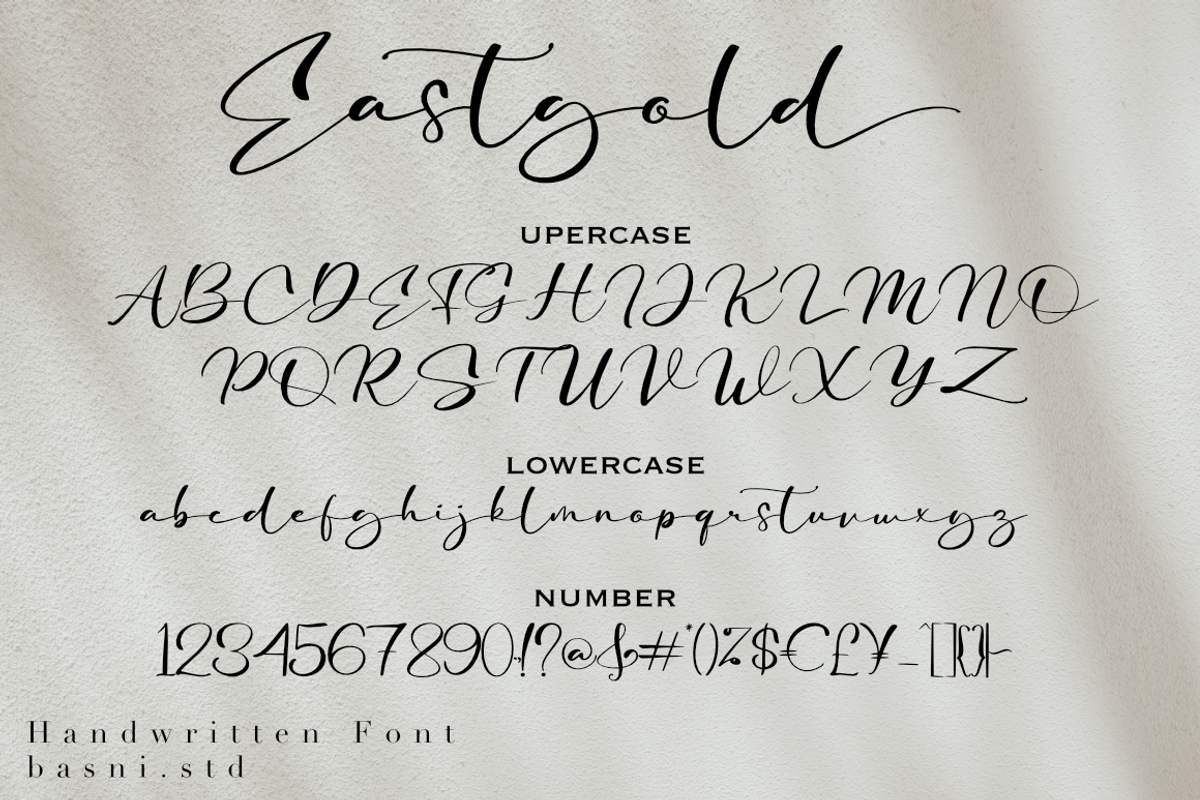 Eastgold
UPERCASE
ABCDEFGHIJKLMNO
PQRSTUVWXYZ
LOWERCASE
abcdefghijklmnopqrstuvwxyz
NUMBER
1234567890.,!?@&#*()%$€£¥_^[]{}|~
Handwritten Font
basni.std